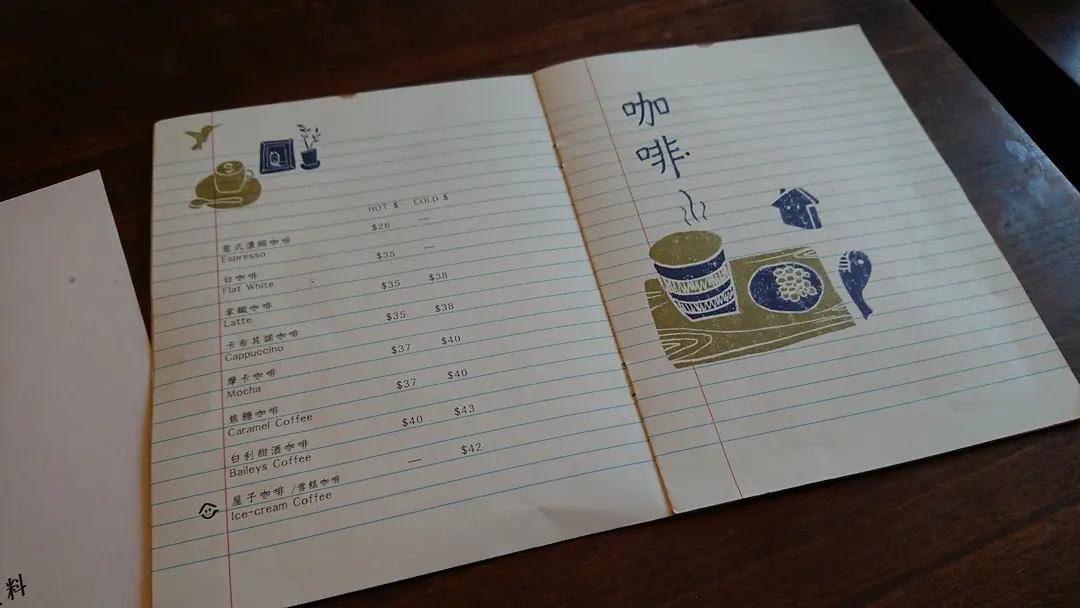 HOT $ COLD $
意式濃縮咖啡 $26 —
Espresso
白咖啡 $35 —
Flat White
拿鐵咖啡 $35 $38
Latte
卡布其諾咖啡 $35 $38
Cappuccino
摩卡咖啡 $37 $40
Mocha
焦糖咖啡 $37 $40
Caramel Coffee
白利甜酒咖啡 $40 $43
Baileys Coffee
屋子咖啡 /雪糕咖啡 — $42
Ice-cream Coffee
咖
啡
料